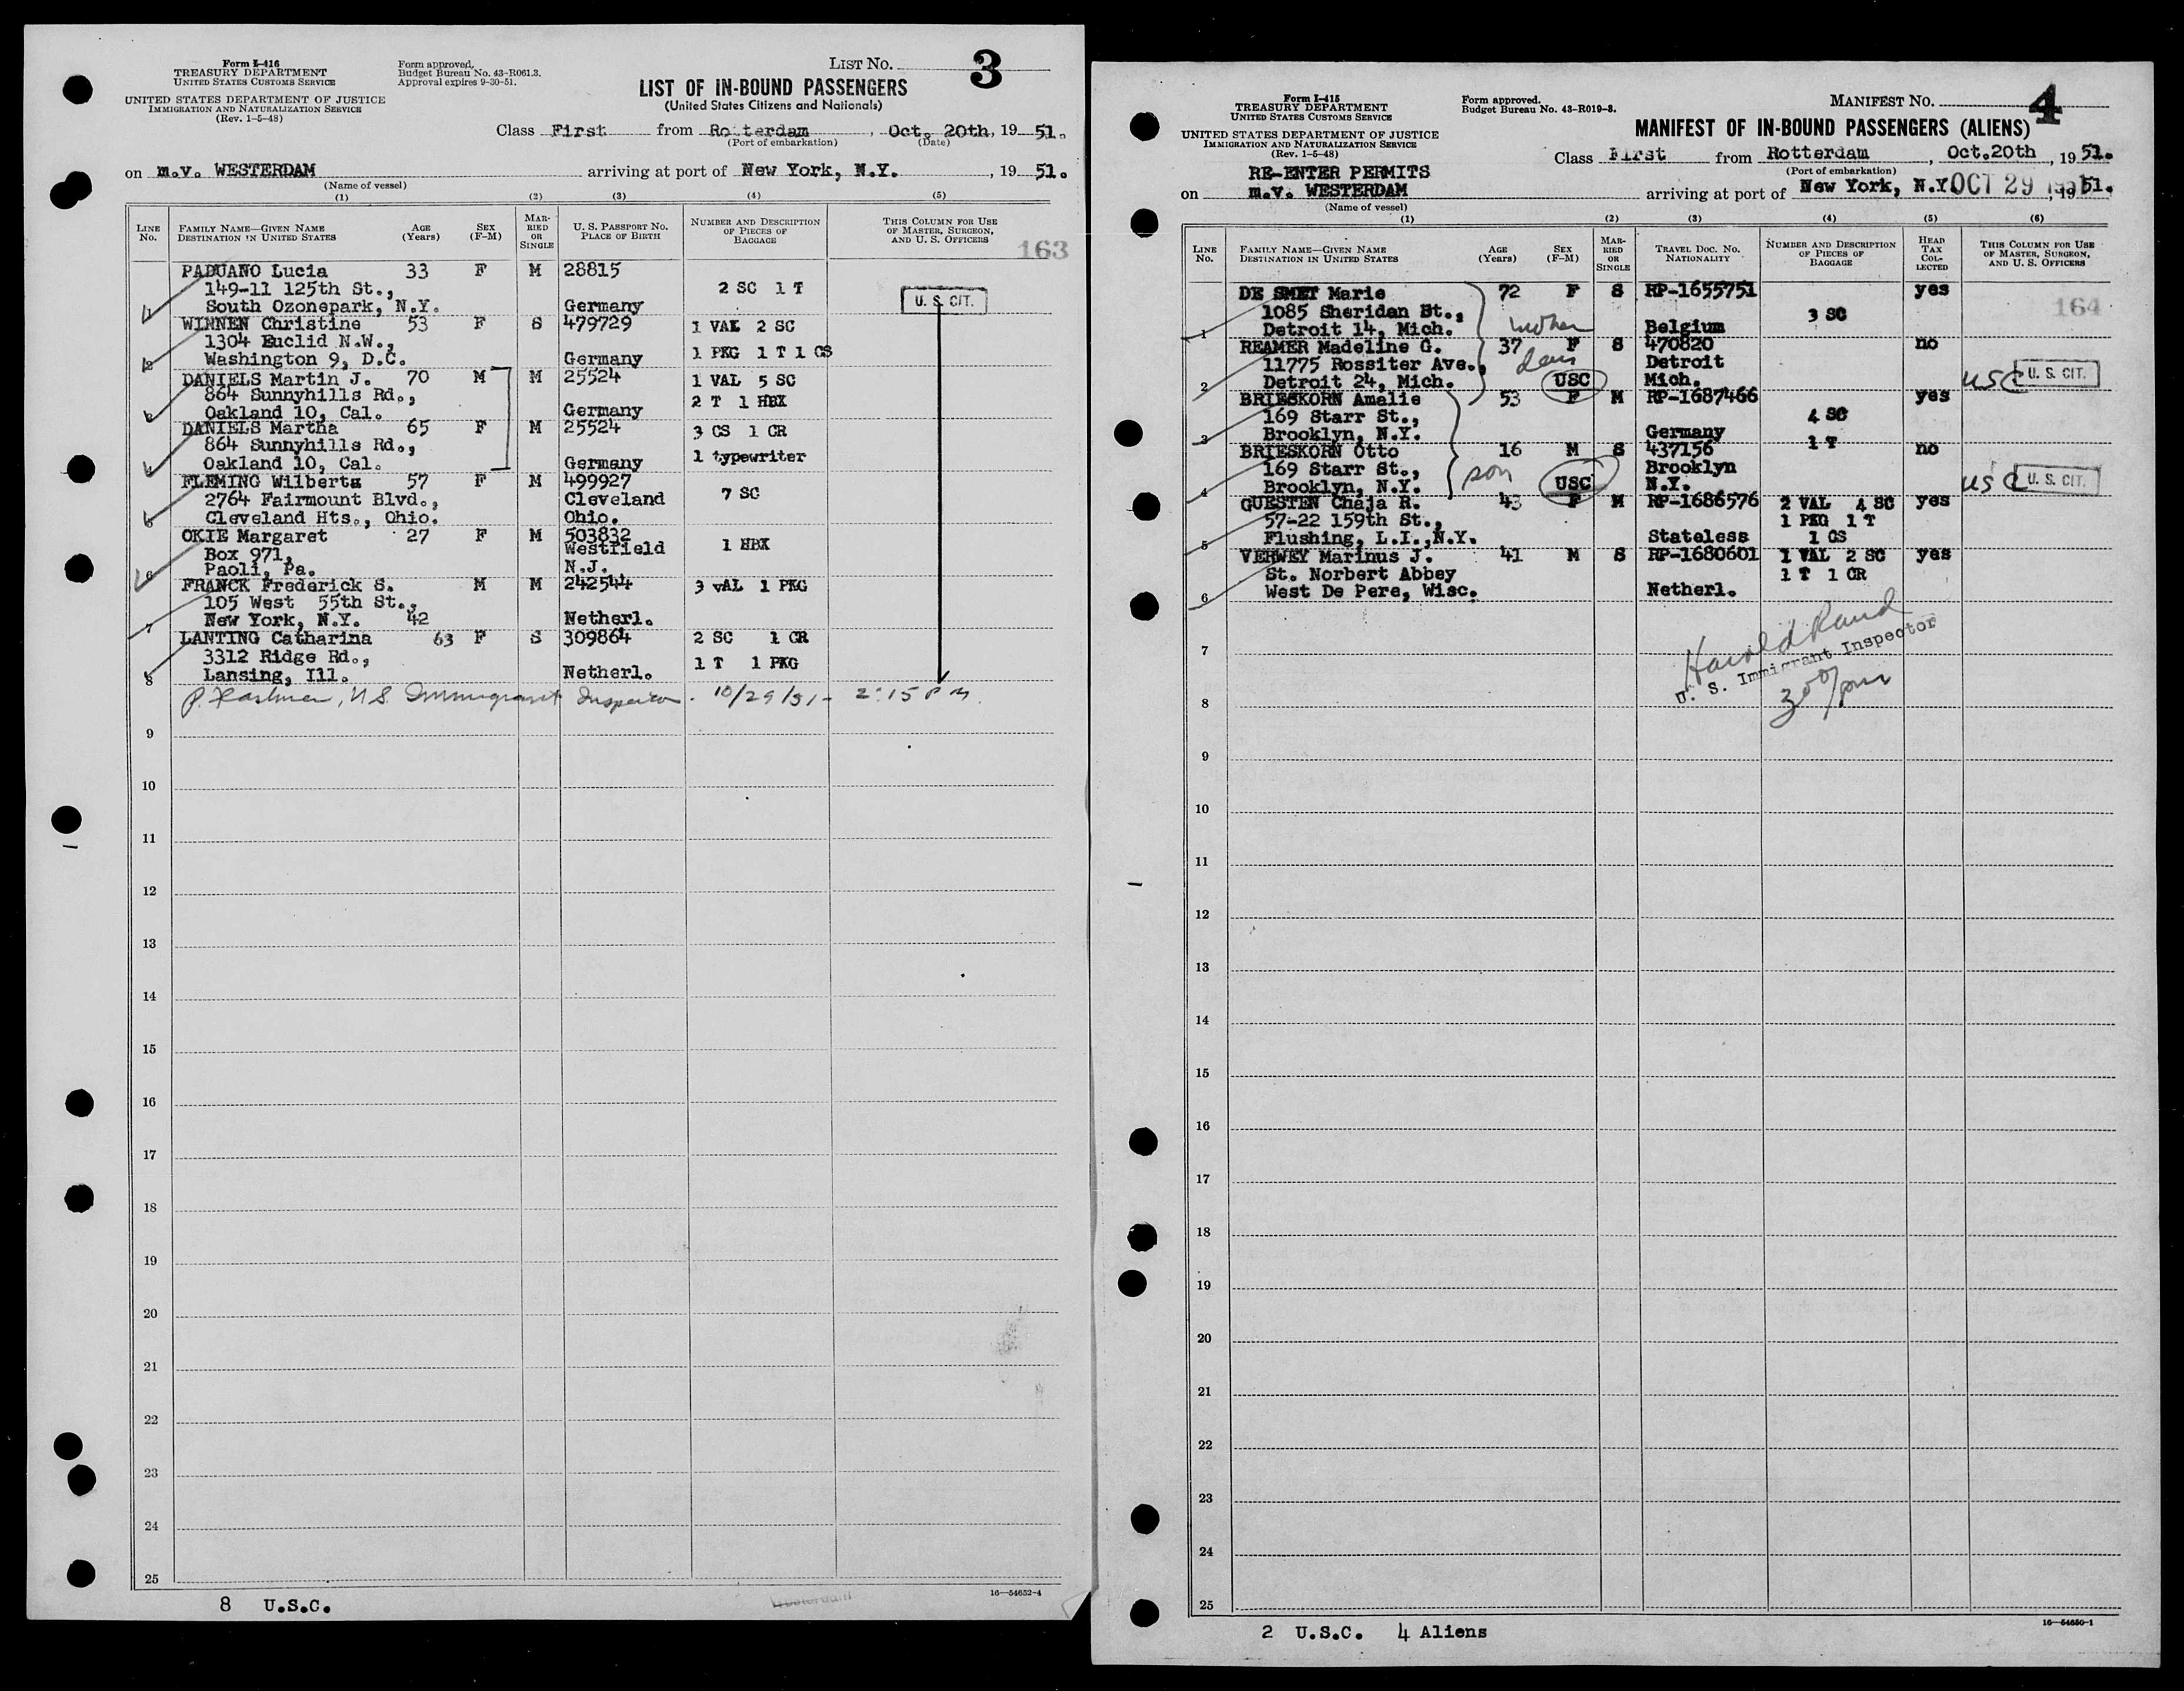 Form I-416
TREASURY DEPARTMENT
UNITED STATES CUSTOMS SERVICE
UNITED STATES DEPARTMENT OF JUSTICE
IMMIGRATION AND NATURALIZATION SERVICE
(Rev. 1-5-48)
Form approved.
Budget Bureau No. 43-R061.3.
Approval expires 9-30-51.
LIST NO. 3
LIST OF IN-BOUND PASSENGERS
(United States Citizens and Nationals)
Class First from Rotterdam, Oct. 20th, 19 51.
(Port of embarkation) (Date)
on m.v. WESTERDAM arriving at port of New York, N.Y., 19 51.
(Name of vessel)
(1) (2) (3) (4) (5)
LINE NO. FAMILY NAME—GIVEN NAME DESTINATION IN UNITED STATES AGE (Years) SEX (F-M) MARRIED OR SINGLE U. S. PASSPORT NO. PLACE OF BIRTH NUMBER AND DESCRIPTION OF PIECES OF BAGGAGE THIS COLUMN FOR USE OF MASTER, SURGEON, AND U. S. OFFICERS
163
PADUANO Lucia 33 F M 28815
149-11 125th St., 2 SC 1 T
1 South Ozonepark, N.Y. Germany U. S. CIT.
WINNEN Christine 53 F S 479729 1 VAL 2 SC
1304 Euclid N.W.,
2 Washington 9, D.C. Germany 1 PKG 1 T 1 CS
DANIELS Martin J. 70 M M 25524 1 VAL 5 SC
864 Sunnyhills Rd., 2 T 1 HBX
3 Oakland 10, Cal. Germany
DANIELS Martha 65 F M 25524 3 CS 1 CR
864 Sunnyhills Rd., 1 typewriter
4 Oakland 10, Cal. Germany
FLEMING Wilberta 57 F M 499927
2764 Fairmount Blvd., Cleveland 7 SC
5 Cleveland Hts., Ohio. Ohio.
OKIE Margaret 27 F M 503832
Box 971, Westfield 1 HBX
6 Paoli, Pa. N.J.
FRANCK Frederick S. M M 242544 3 VAL 1 PKG
105 West 55th St.,
7 New York, N.Y. 42 Netherl.
LANTING Catharina 63 F S 309864 2 SC 1 CR
3312 Ridge Rd., 1 T 1 PKG
8 Lansing, Ill. Netherl.
U.S. Immigrant Inspector. 10/29/51- 2:15 PM.
9
10
11
12
13
14
15
16
17
18
19
20
21
22
23
24
25
16—54652-4
8 U.S.C.
Westerdam
Form I-415
TREASURY DEPARTMENT
UNITED STATES CUSTOMS SERVICE
UNITED STATES DEPARTMENT OF JUSTICE
IMMIGRATION AND NATURALIZATION SERVICE
(Rev. 1-5-48)
Form approved.
Budget Bureau No. 43-R019-3.
MANIFEST NO. 4
MANIFEST OF IN-BOUND PASSENGERS (ALIENS)
Class First from Rotterdam, Oct.20th, 19 51.
(Port of embarkation)
RE-ENTER PERMITS
on m.v. WESTERDAM arriving at port of New York, N.Y. OCT 29 1951, 19 51.
(Name of vessel)
(1) (2) (3) (4) (5) (6)
LINE NO. FAMILY NAME—GIVEN NAME DESTINATION IN UNITED STATES AGE (Years) SEX (F-M) MARRIED OR SINGLE TRAVEL DOC. NO. NATIONALITY NUMBER AND DESCRIPTION OF PIECES OF BAGGAGE HEAD TAX COLLECTED THIS COLUMN FOR USE OF MASTER, SURGEON, AND U. S. OFFICERS
164
DE SMET Marie 72 F S RP-1655751 yes
1085 Sheridan St., 3 SC
1 Detroit 14, Mich. mother Belgium
REAMER Madeline G. 37 F S 470820 no
11775 Rossiter Ave., dau Detroit
2 Detroit 24, Mich. USC Mich. usc U. S. CIT.
BRIESKORN Amalie 53 F M RP-1687466 yes
169 Starr St., 4 SC
3 Brooklyn, N.Y. Germany
BRIESKORN Otto 16 M S 437156 1 T no
169 Starr St., son Brooklyn
4 Brooklyn, N.Y. USC N.Y. usc U. S. CIT.
GUESTEN Chaja R. 43 F M RP-1686576 2 VAL 4 SC yes
57-22 159th St., 1 PKG 1 T
5 Flushing, L.I.,N.Y. Stateless 1 CS
VERWEY Marinus J. 41 M S RP-1680601 1 VAL 2 SC yes
St. Norbert Abbey 1 T 1 CR
6 West De Pere, Wisc. Netherl.
Harold Rand
U. S. Immigrant Inspector
3 00/pm
7
8
9
10
11
12
13
14
15
16
17
18
19
20
21
22
23
24
25
16—54650-1
2 U.S.C. 4 Aliens